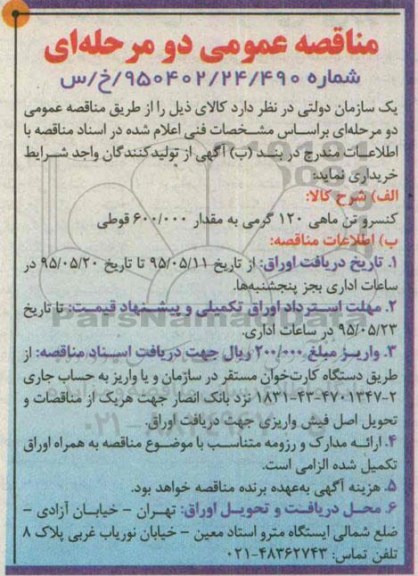 مناقصه عمومی دو مرحله‌ای
شماره ۹۵۰۴۰۲/۲۴/۴۹۰/خ/س
یک سازمان دولتی در نظر دارد کالای ذیل را از طریق مناقصه عمومی
دو مرحله‌ای براساس مشخصات فنی اعلام شده در اسناد مناقصه با
اطلاعات مندرج در بند (ب) آگهی از تولیدکنندگان واجد شرایط
خریداری نماید:
الف) شرح کالا:
کنسرو تن ماهی ۱۲۰ گرمی به مقدار ۶۰۰/۰۰۰ قوطی
ب) اطلاعات مناقصه:
۱. تاریخ دریافت اوراق: از تاریخ ۹۵/۰۵/۱۱ تا تاریخ ۹۵/۰۵/۲۰ در
ساعات اداری بجز پنجشنبه‌ها.
۲. مهلت استرداد اوراق تکمیلی و پیشنهاد قیمت: تا تاریخ
۹۵/۰۵/۲۳ در ساعات اداری.
۳. واریز مبلغ ۲۰۰/۰۰۰ ریال جهت دریافت اسناد مناقصه: از
طریق دستگاه کارت‌خوان مستقر در سازمان و یا واریز به حساب جاری
۲-۴۷۰۱۳۴۷-۴۳-۱۸۳۱ نزد بانک انصار جهت هریک از مناقصات و
تحویل اصل فیش واریزی جهت دریافت اوراق.
۴. ارائه مدارک و رزومه متناسب با موضوع مناقصه به همراه اوراق
تکمیل شده الزامی است.
۵. هزینه آگهی به‌عهده برنده مناقصه خواهد بود.
۶. محل دریافت و تحویل اوراق: تهران – خیابان آزادی –
ضلع شمالی ایستگاه مترو استاد معین – خیابان نوریاب غربی پلاک ۸
تلفن تماس: ۴۸۳۶۲۷۴۳-۰۲۱
ParsNamadData